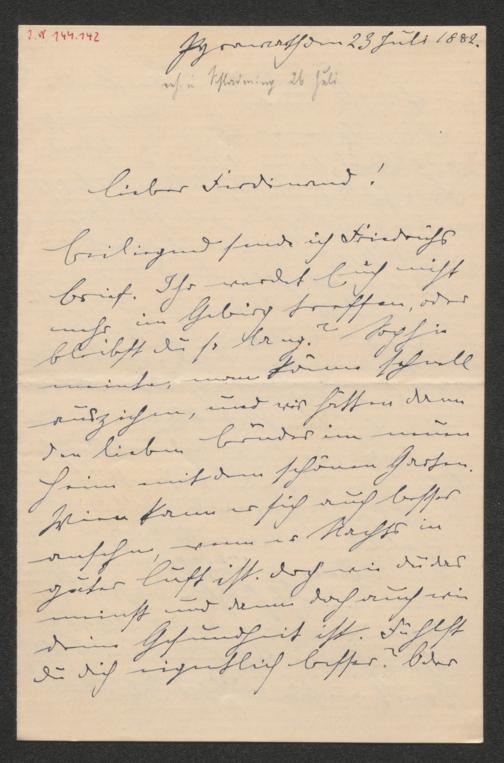 I.N 144.142
Pyrawarth dm 23 Juli 1882.
erh. in Schladming 26 Juli
Lieber Ferdinand!
Beiliegend sende ich Friedrichs
Brief. Ihr werdet Euch nicht
mehr im Gebirg treffen, oder
bleibst du so lang? Sophie
meinte, man könne schnell
ausziehen, und wir hätten dann
den lieben Bruder im neuen
Heim mit dem schönen Garten.
Wien kann er sich auch besser
ansehen, wenn er Nachts in
guter Luft ist. doch wie du das
meinst und dann doch auch wie
deine Gesundheit ist. Fühlst
du dich eigentlich besser? Oder